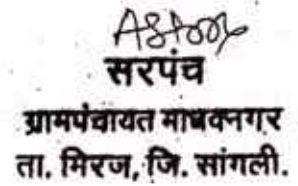 सरपंच
ग्रामपंचायत माधवनगर
ता. मिरज, जि. सांगली.